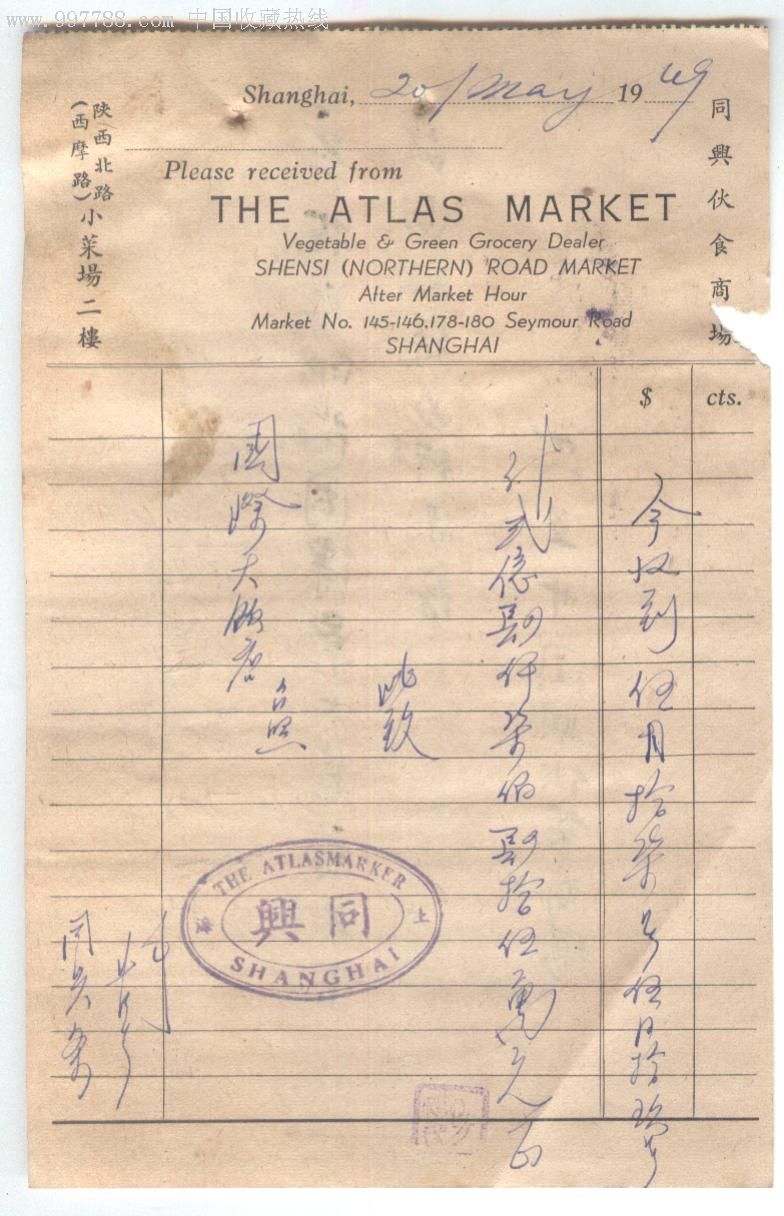 www.997788.com 中国收藏热线
Shanghai, 20/May 1949
Please received from
THE ATLAS MARKET
Vegetable & Green Grocery Dealer
SHENSI (NORTHERN) ROAD MARKET
After Market Hour
Market No. 145-146.178-180 Seymour Road
SHANGHAI
同興伙食商場
陝西北路
(西摩路)
小菜場二樓
$ cts.
今收到伍月拾柒号伍月拾玖号
弍億仟柒佰拾伍萬元
此致
國際大飯店
台照
THE ATLASMARKER
同興
上海
SHANGHAI